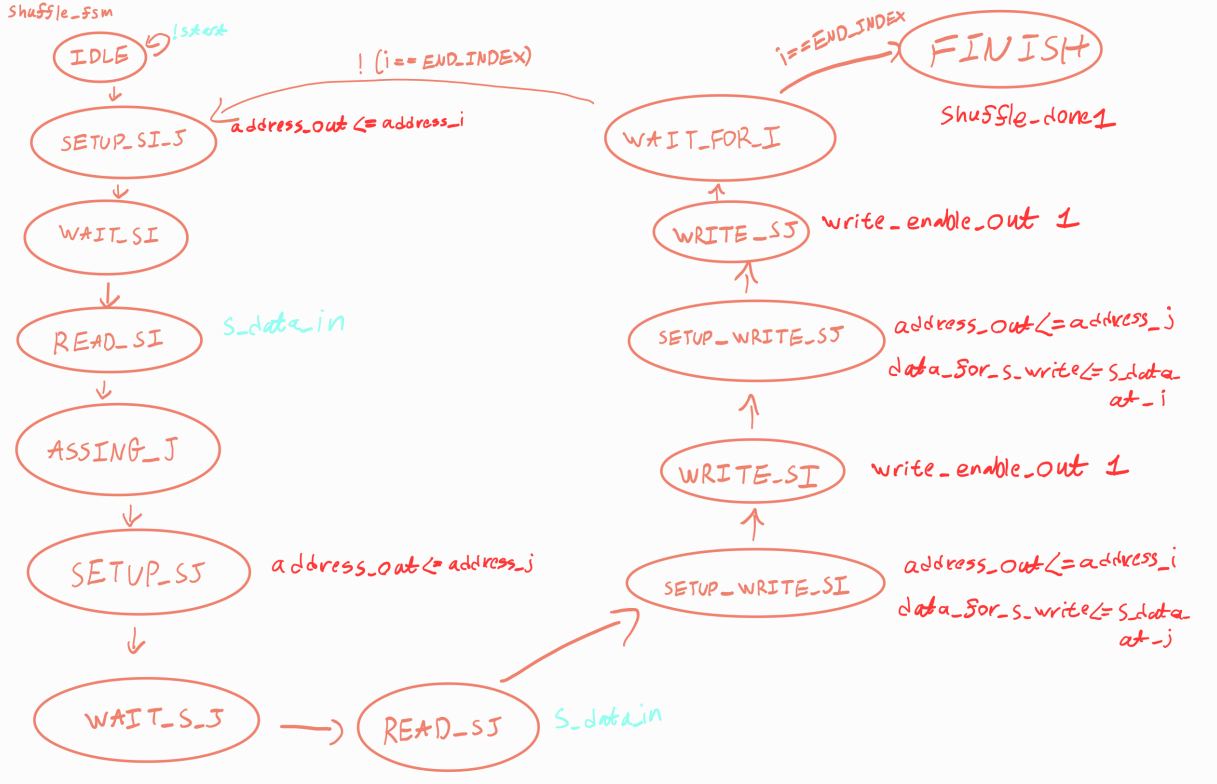 Shuffle_fsm
IDLE
!start
SETUP_SI_J
address_out <= address_i
! (i == END_INDEX)
WAIT_SI
READ_SI
S_data_in
ASSING_J
SETUP_SJ
address_out <= address_j
WAIT_S_J
READ_SJ
S_data_in
SETUP_WRITE_SI
address_out <= address_i
data_for_s_write <= s_data_
at_j
WRITE_SI
write_enable_out 1
SETUP_WRITE_SJ
address_out <= address_j
data_for_s_write <= s_data_
at_i
WRITE_SJ
write_enable_out 1
WAIT_FOR_I
i==END_INDEX
FINISH
Shuffle_done 1